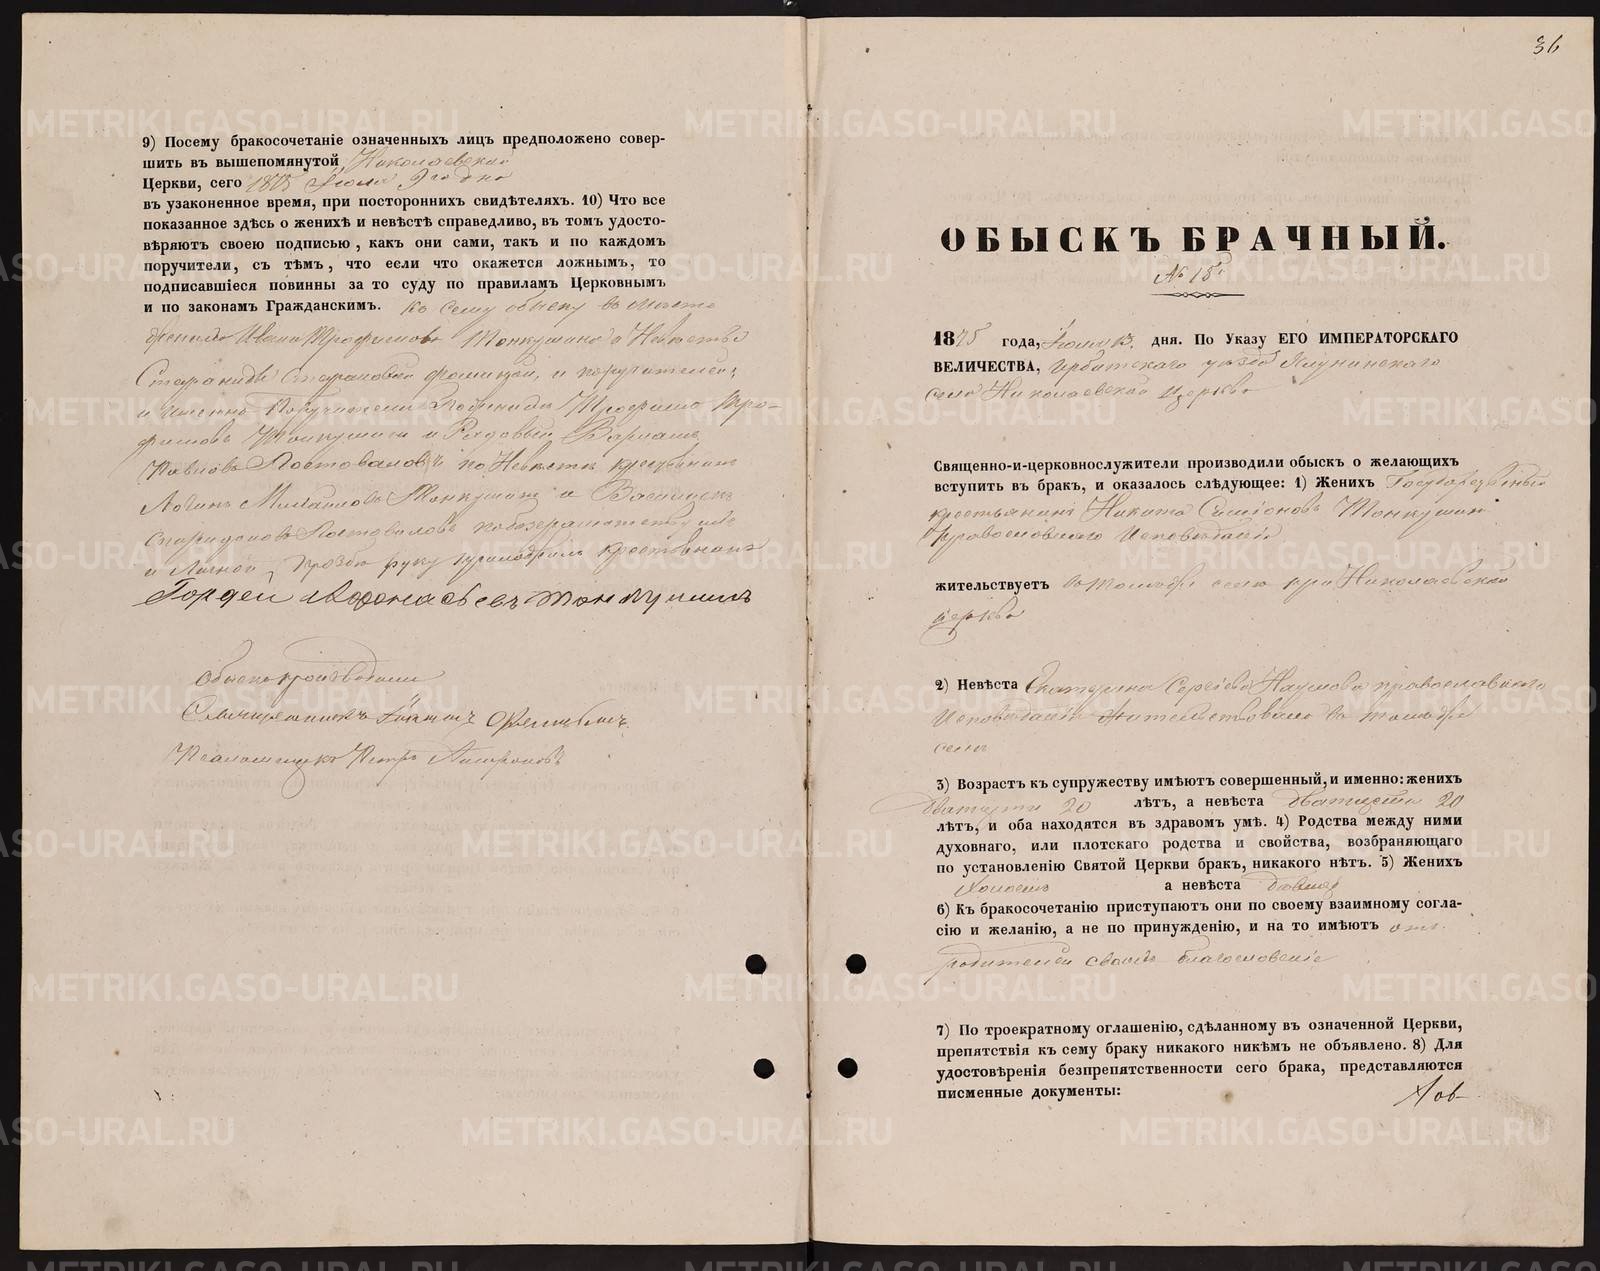 9) Посему бракосочетаніе означенныхъ лицъ предположено совер-
шить въ вышепомянутой Николаевской
Церкви, сего 1875 Іюля 9го дня
въ узаконенное время, при постороннихъ свидѣтеляхъ. 10) Что все
показанное здѣсь о женихѣ и невѣстѣ справедливо, въ томъ удосто-
вѣряютъ своею подписью, какъ они сами, такъ и по каждомъ
поручители, съ тѣмъ, что если что окажется ложнымъ, то
подписавшіеся повинны за то суду по правиламъ Церковнымъ
и по законамъ Гражданскимъ. Къ сему обыску въ мѣсто
Ивана Трофимова Тонкушина и Невѣсты
и поручителей,
и именно Поручители Трофимъ Тро-
фимовъ Тонкушинъ и Рядовый
Павловъ Постоваловъ и по Невѣсти крестьянинъ
Логинъ Михаиловъ Тонкушинъ и
Спиридоновъ Постоваловъ
и личной прозбы руку приложилъ крестьянинъ
Гордеи Афонасьевъ Тонкушинъ
Обыскъ производили
Священникъ
Псаломщикъ Петръ
36
ОБЫСКЪ БРАЧНЫЙ.
№ 18й
1875 года, дня. По Указу ЕГО ИМПЕРАТОРСКАГО
ВЕЛИЧЕСТВА, Ирбитскаго уѣзда
села Николаевской церкви
Священно-и-церковнослужители производили обыскъ о желающихъ
вступить въ бракъ, и оказалось слѣдующее: 1) Женихъ Государственный
крестьянинъ Никита Симіоновъ Тонкушин
Православнаго Исповѣданія
жительствуетъ въ томъ же селѣ при Николаевской
церкви
2) Невѣста Екатерина Сергіева Наумова православнаго
Исповѣданія жительствовала въ томъ же
селѣ
3) Возрастъ къ супружеству имѣютъ совершенный, и именно: женихъ
дватцати 20 лѣтъ, а невѣста дватцати 20
лѣтъ, и оба находятся въ здравомъ умѣ. 4) Родства между ними
духовнаго, или плотскаго родства и свойства, возбраняющаго
по установленію Святой Церкви бракъ, никакого нѣтъ. 5) Женихъ
Холостъ а невѣста дѣвица
6) Къ бракосочетанію приступаютъ они по своему взаимному согла-
сію и желанію, а не по принужденію, и на то имѣютъ отъ
родителей своихъ благословеніе
7) По троекратному оглашенію, сдѣланному въ означенной Церкви,
препятствія къ сему браку никакого никѣмъ не объявлено. 8) Для
удостовѣренія безпрепятственности сего брака, представляются
писменные документы:
METRIKI.GASO-URAL.RU